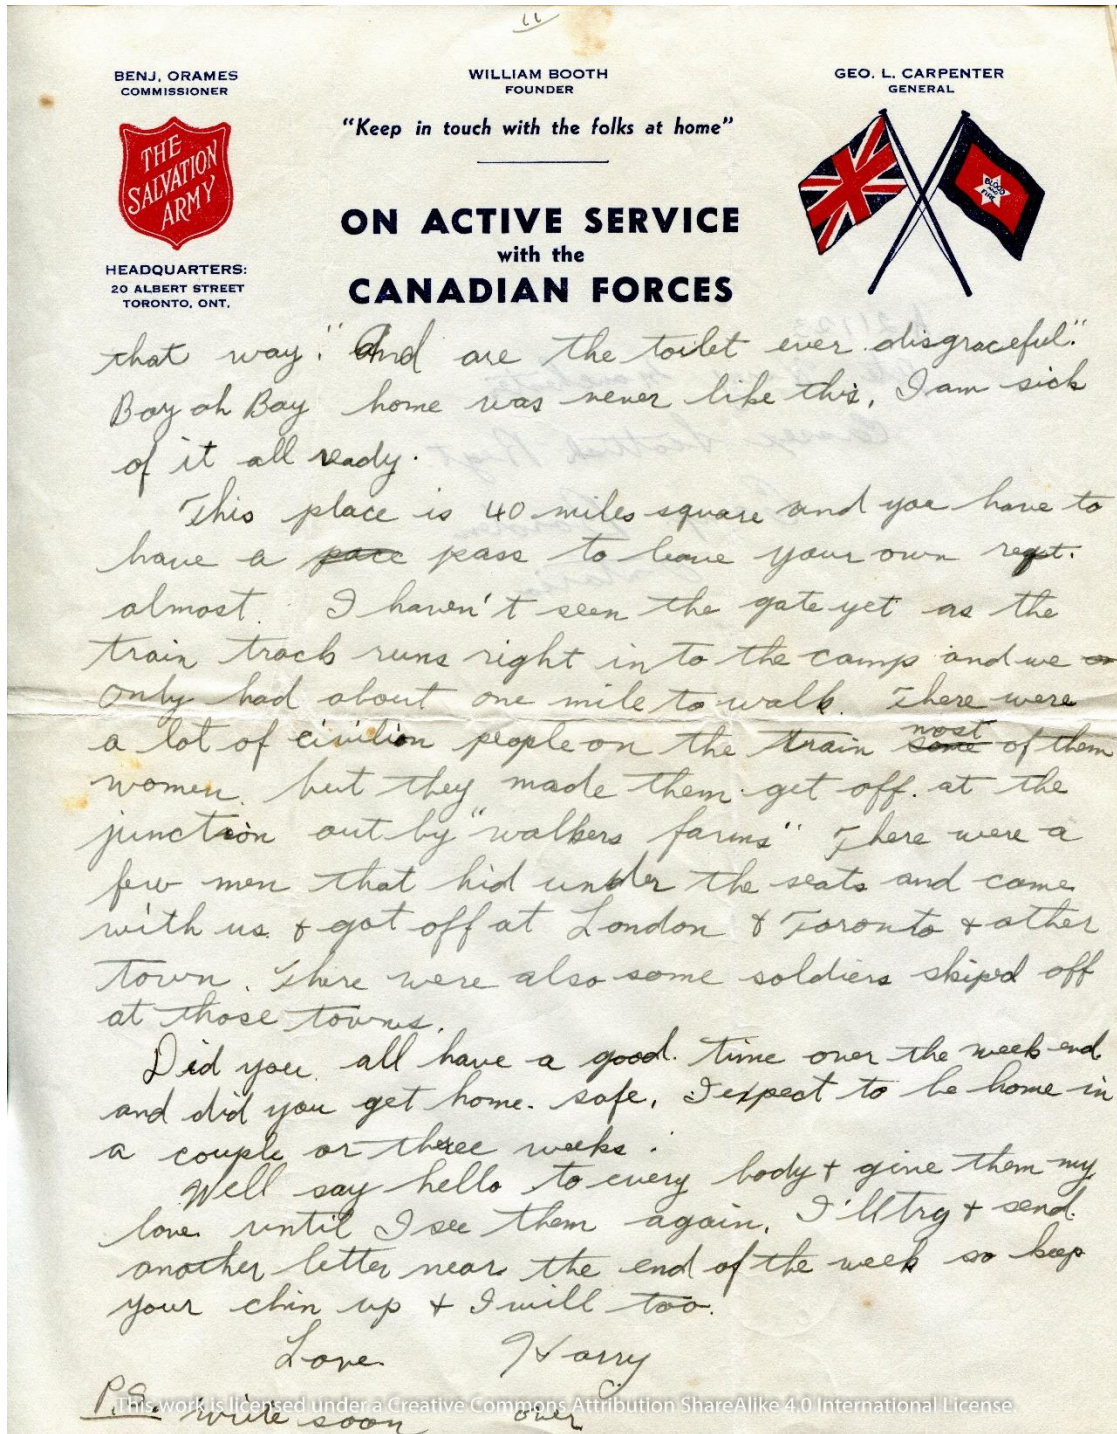 11
BENJ. ORAMES
COMMISSIONER
THE
SALVATION
ARMY
HEADQUARTERS:
20 ALBERT STREET
TORONTO, ONT.
WILLIAM BOOTH
FOUNDER
"Keep in touch with the folks at home"
ON ACTIVE SERVICE
with the
CANADIAN FORCES
GEO. L. CARPENTER
GENERAL
BLOOD
AND
FIRE
that way." And are the toilet ever disgraceful."
Boy oh Boy home was never like this, I am sick
of it all ready.
This place is 40 miles square and you have to
have a pace pass to leave your own regt.
almost. I haven't seen the gate yet as the
train track runs right in to the camp and we
only had about one mile to walk. There were
a lot of civilion people on the train some most of them
women. but they made them get off. at the
junction out by "walkers farms" There were a
few men that hid under the seats and came
with us & got off at London & Toronto & other
town. There were also some soldiers skiped off
at those towns.
Did you all have a good time over the week-end
and did you get home. safe, I expect to be home in
a couple or three weeks.
Well say hello to every body & give them my
love until I see them again. I'll try & send
another letter near the end of the week so keep
your chin up & I will too.
Love Harry
P.S. write soon over
This work is licensed under a Creative Commons Attribution ShareAlike 4.0 International License.